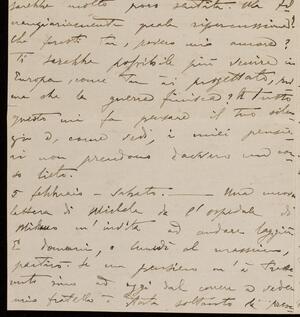 sarebbe molto poco sentita. Ma
quale ripercussione!
Che faresti tu, povero mio amore?
Ti sarebbe possibile più venire in
Europa, come tu ài progettato, pri-
ma che la guerra finisca? A tutto
questo mi fa pensare il tuo silen-
zio e, come vedi, i miei pensie-
ri non prendono davvero un
lieto.
5 febbraio - sabato. - Una nuova
lettera di Michele da l'ospedale di
Milano m'invita ad andare laggiù.
E domani, o lunedì al massimo,
partirò. Se un pensiero m'à
nuto sino ad oggi dal correre a vedere
mio fratello - stata soltanto